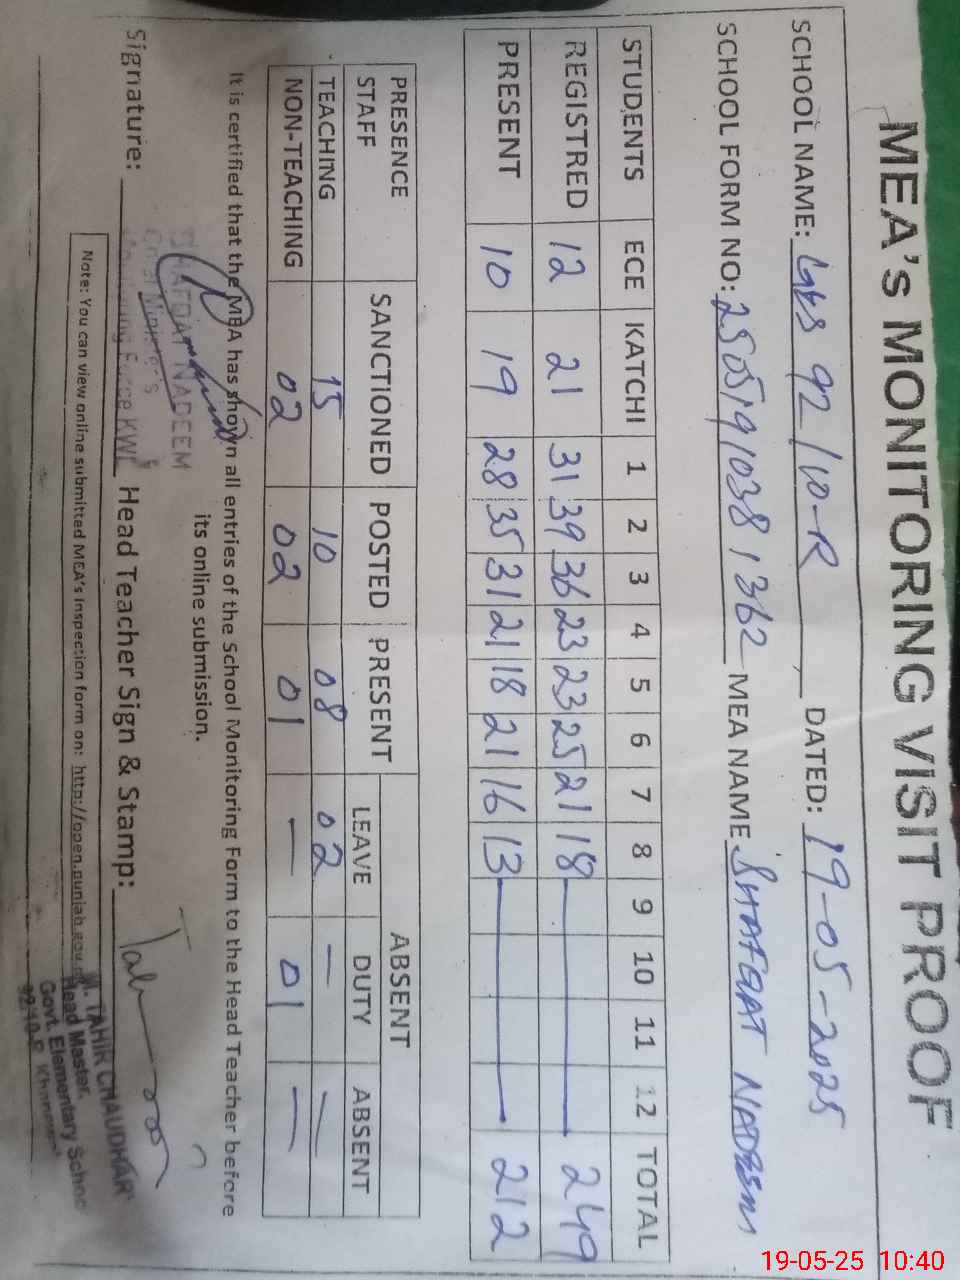 MEA's MONITORING VISIT PROOF
SCHOOL NAME: GES 92/10-R DATED: 19-05-2025
SCHOOL FORM NO: 25051910381362 MEA NAME SHAFQAT NADEEM
STUDENTS ECE KATCHI 1 2 3 4 5 6 7 8 9 10 11 12 TOTAL
REGISTRED 12 21 31 39 36 23 23 25 21 18 249
PRESENT 10 19 28 35 31 21 18 21 16 13 212
PRESENCE STAFF SANCTIONED POSTED PRESENT ABSENT
LEAVE DUTY ABSENT
TEACHING 15 10 08 02 — —
NON-TEACHING 02 02 01 — 01 —
It is certified that the MEA has shown all entries of the School Monitoring Form to the Head Teacher before
its online submission.
SHAFQAT NADEEM
Chief Minister's
Monitoring Force KWL
Signature: Head Teacher Sign & Stamp:
M. TAHIR CHAUDHARY
Head Master.
Govt. Elementary School
92.10-R
Note: You can view online submitted MEA's Inspection form on: http://open.punjab.gov.
19-05-25 10:40